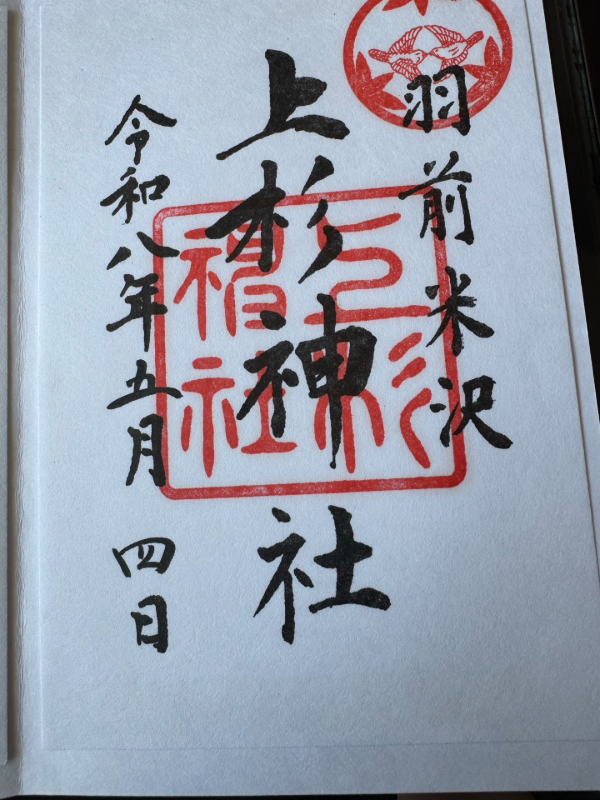 羽前米沢
上杉神社
上杉神社
令和八年五月四日